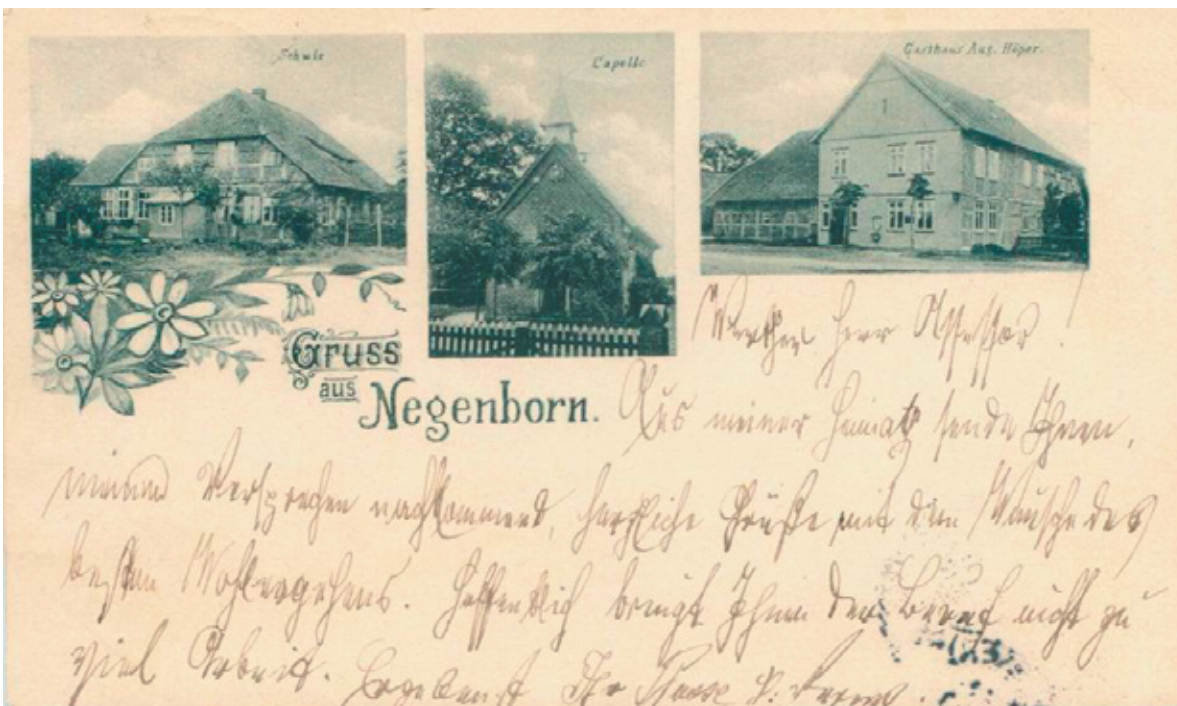 Schule
Capelle
Gasthaus Aug. Höper.
Gruss
aus
Negenborn.
Werther Herr Assessor!
Aus meiner Heimat sende Ihnen,
meinem Versprechen nachkommend, herzliche Grüße mit dem Wunsche des
besten Wohlergehens. Hoffentlich bringt Ihnen der Beruf nicht zu
viel Arbeit. Ergebenst Ihr